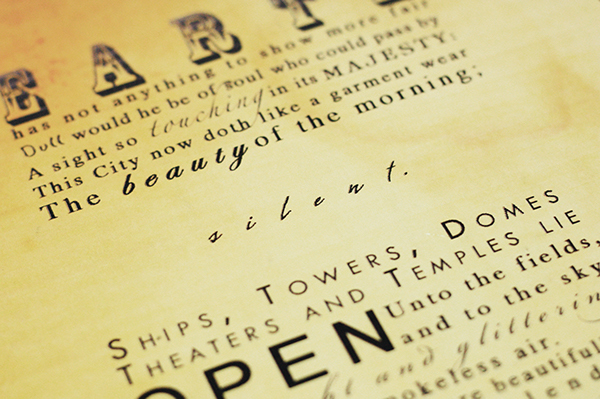 EARTH
has not anything to show more fair
Dull would he be of soul who could pass by
A sight so touching in its MAJESTY;
This City now doth like a garment wear
The beauty of the morning;
silent.
SHIPS, TOWERS, DOMES
THEATERS AND TEMPLES LIE
OPEN Unto the fields,
and to the sky
and glittering
smokeless air.
beautifully